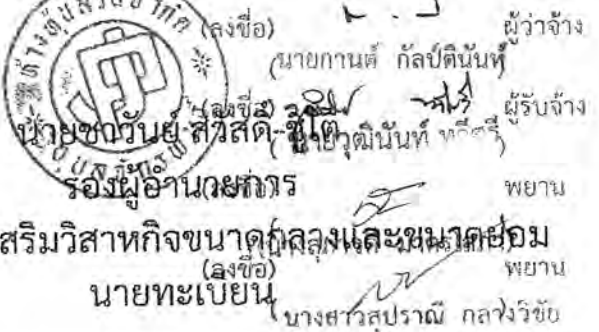 (ลงชื่อ) ผู้ว่าจ้าง
(นายกานต์ กัลป์ตินันท์)
(ลงชื่อ) ผู้รับจ้าง
นายชาวันย์ สวัสดิ์-ชูโต
(นายวุฒินันท์
รองผู้อำนวยการ
(ลงชื่อ) พยาน
สริมวิสาหกิจขนาดกลางและขนาดย่อม
(ลงชื่อ) พยาน
นายทะเบียน
(นางสาวสุปราณี กลางวิชัย